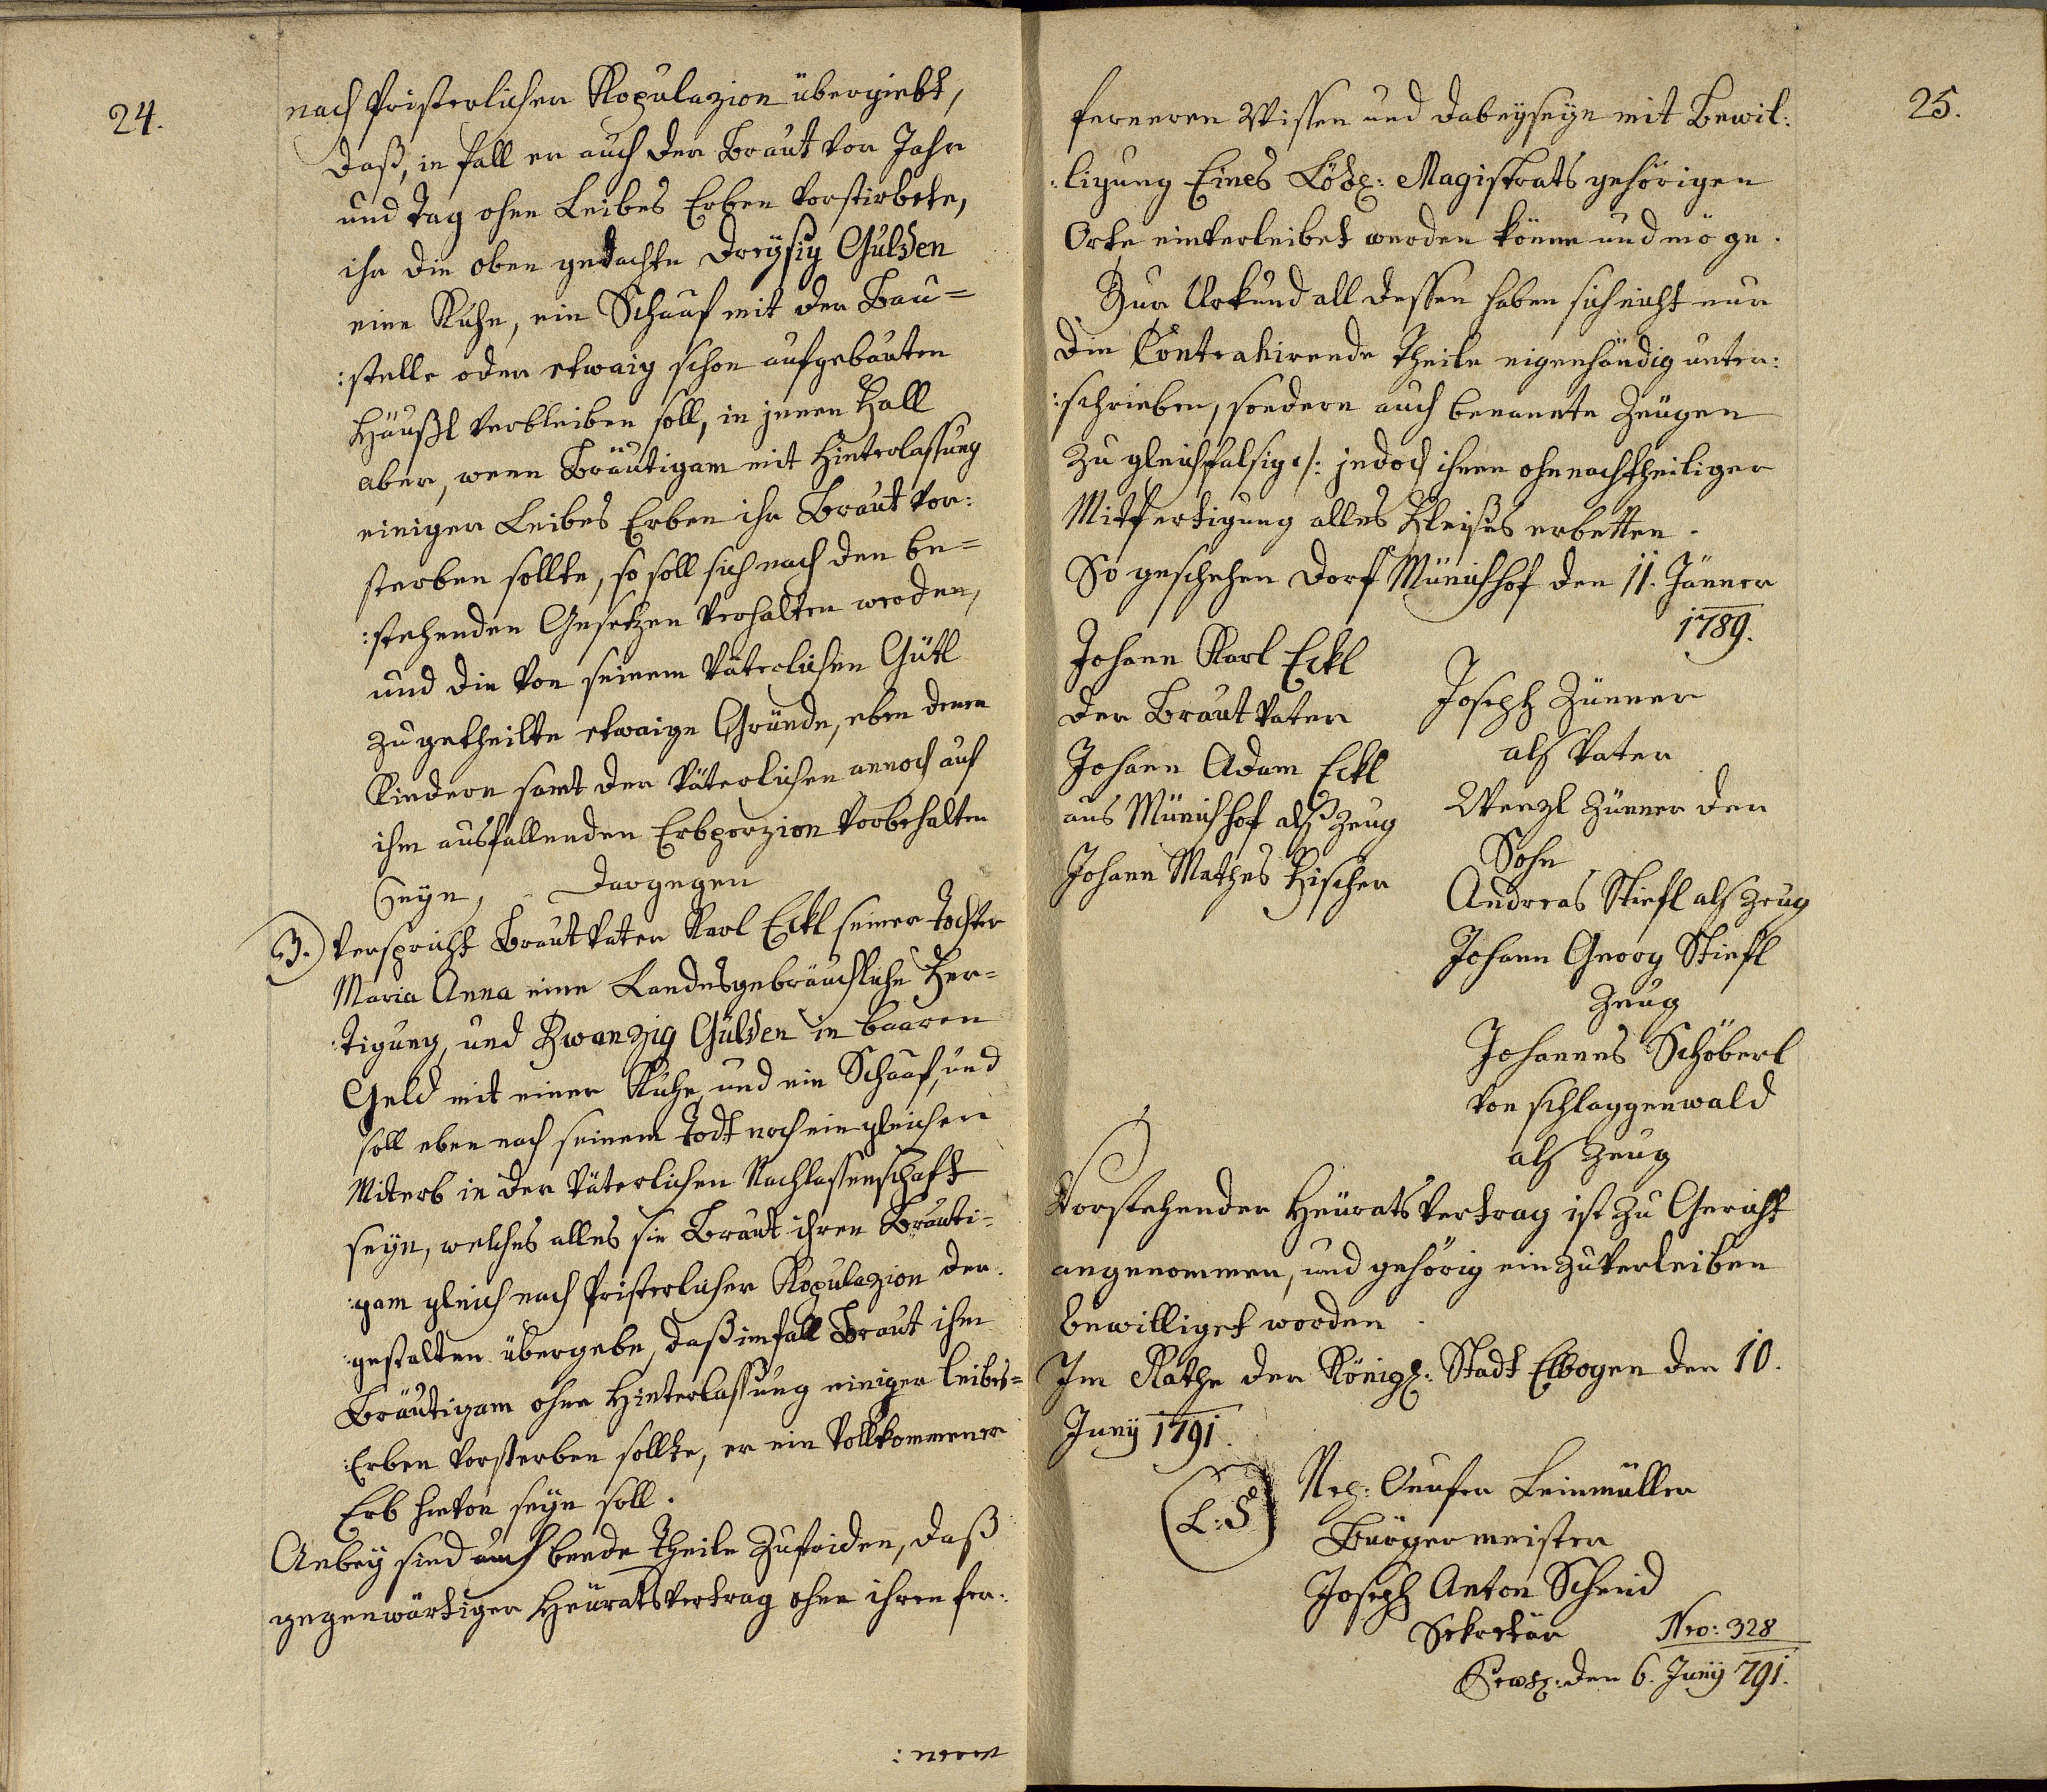 24.
nach Pristerlicher Kopulazion übergiebt,
daß, in fall er auch der Braut vor Jahr
und Tag ohne Leibes Erben vorstirbete,
ihr die oben gedachte Dreÿsig Gulden
eine Kuhe, ein Schaaf mit der Bau=
:stelle oder etwaig schon aufgebauten
Häußl verbleiben soll, in jenen Fall
aber, wenn Bräutigam mit Hinterlassung
einiger Leibes Erben ihr Braut vor:
sterben sollte, so soll sich nach den be=
:stehenden Gesetzen verhalten werden,
und die von seinem väterlichen Gütl
zugetheilte etwaige Gründe, eben denen
Kindern samt der väterlichen annoch auf
ihm ausfallenden Erbporzion vorbehalten
seÿn, Dargegen
3.) verspricht Braut Vater Karl Eckl seiner Tochter
Maria Anna eine Landesgebräuchliche Fer=
:tigung, und Zwanzig Gulden in baaren
Geld mit einer Kuhe, und ein Schaaf, und
soll eben nach seinem Todt noch ein gleicher
Miterb in der väterlichen Nachlassenschaft
seÿn, welches alles sie Braut ihren Bräuti=
:gam gleich nach Pristerlicher Kopulazion der
:gestalten übergebe, daß im fall Braut ihm
Bräutigam ohne Hinterlassung einiger leibes=
:Erben vorsterben sollte, er ein vollkommener
Erb hievon seÿn soll.
Anbeÿ sind auch beede Theile zufriden, daß
gegenwärtiger Heüratsvertrag ohne ihren fer:
:neren
25.
ferneren Wissen und dabeÿseÿn mit Bewil:
:ligung Eines Löbl: Magistrats gehörigen
Orts einverleibet werden könne und möge.
Zur Urkund all dessen haben sich nicht nur
die Contrahirende Theile eigenhändig unter:
:schrieben, sondern auch benannte Zeugen
zu gleichfalsig /: jedoch ihnen ohnnachtheiliger
Mitfertigung alles Fleißes erbetten.
So geschehen Dorf Münichhof den 11. Jänner
1789.
Johann Karl Eckl
der Braut Vater
Johann Adam Eckl
aus Münichhof alß Zeug
Johann Mathes Fischer
Joseph Zünner
als Vater
Wenzl Zünner der
Sohn
Andreas Stiefl als Zeug
Johann Georg Stiefl
Zeug
Johannes Schöberl
von schlaggenwald
als Zeug
Vorstehender Heüratsvertrag ist zu Gericht
angenommen, und gehörig einzuverleiben
bewilliget worden.
Im Rathe der Königl: Stadt Elbogen den 10.
Junÿ 1791.
(L:S)
Leinmüller
Bürgermeister
Joseph Anton Schmid
Sekretär
Nro: 328
den 6. Junÿ 791.